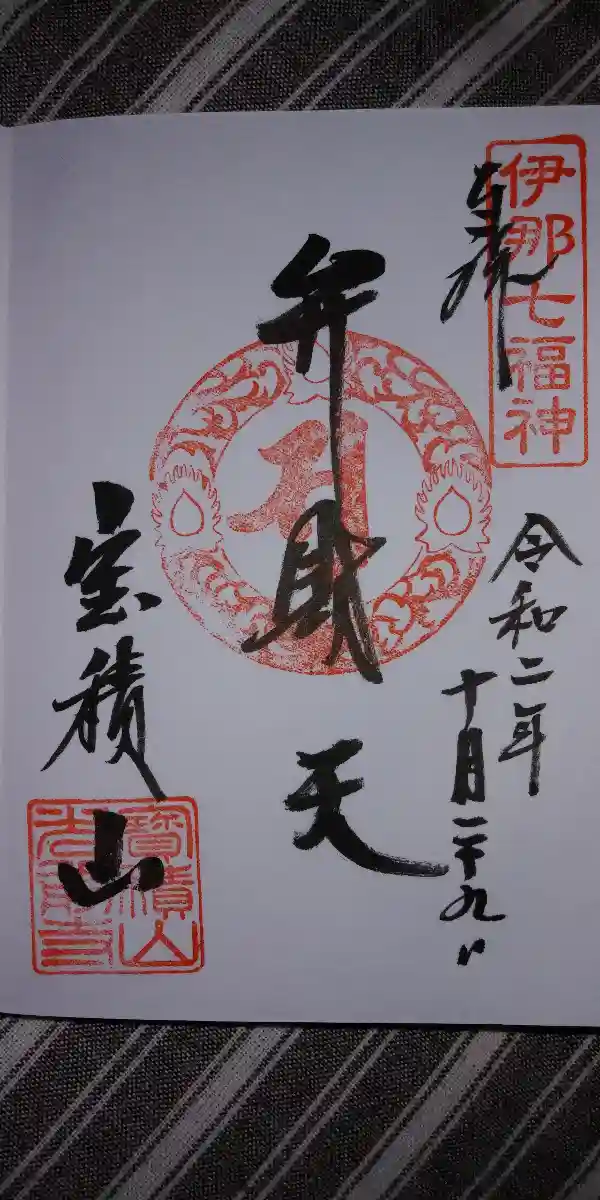 伊那七福神
奉拝
令和二年
十月二十九日
弁財天
宝積山
寶積山
光前寺